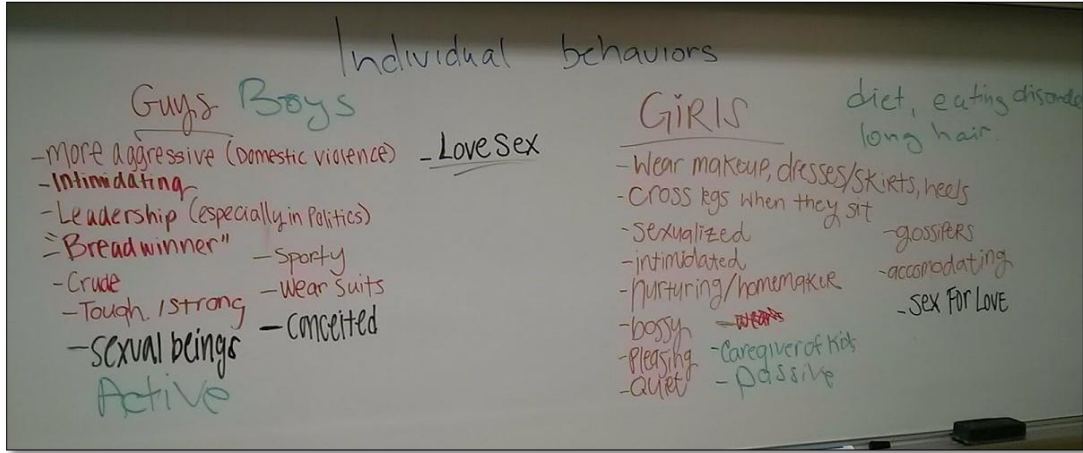 Individual behaviors
Guys Boys
-more aggressive (Domestic violence)
-Intimidating
-Leadership (especially in Politics)
-"Breadwinner"
-Crude
-Tough /strong
-sexual beings
Active
-Sporty
-Wear suits
-conceited
-Love sex
GiRlS
diet, eating disorde
long hair.
-Wear makeup, dresses/skirts, heels
-cross legs when they sit
-sexualized
-intimidated
-nurturing/homemaker
-bossy
-Pleasing
-Quiet
-Caregiver of kids
-passive
-gossipers
-accomadating
-Sex For Love